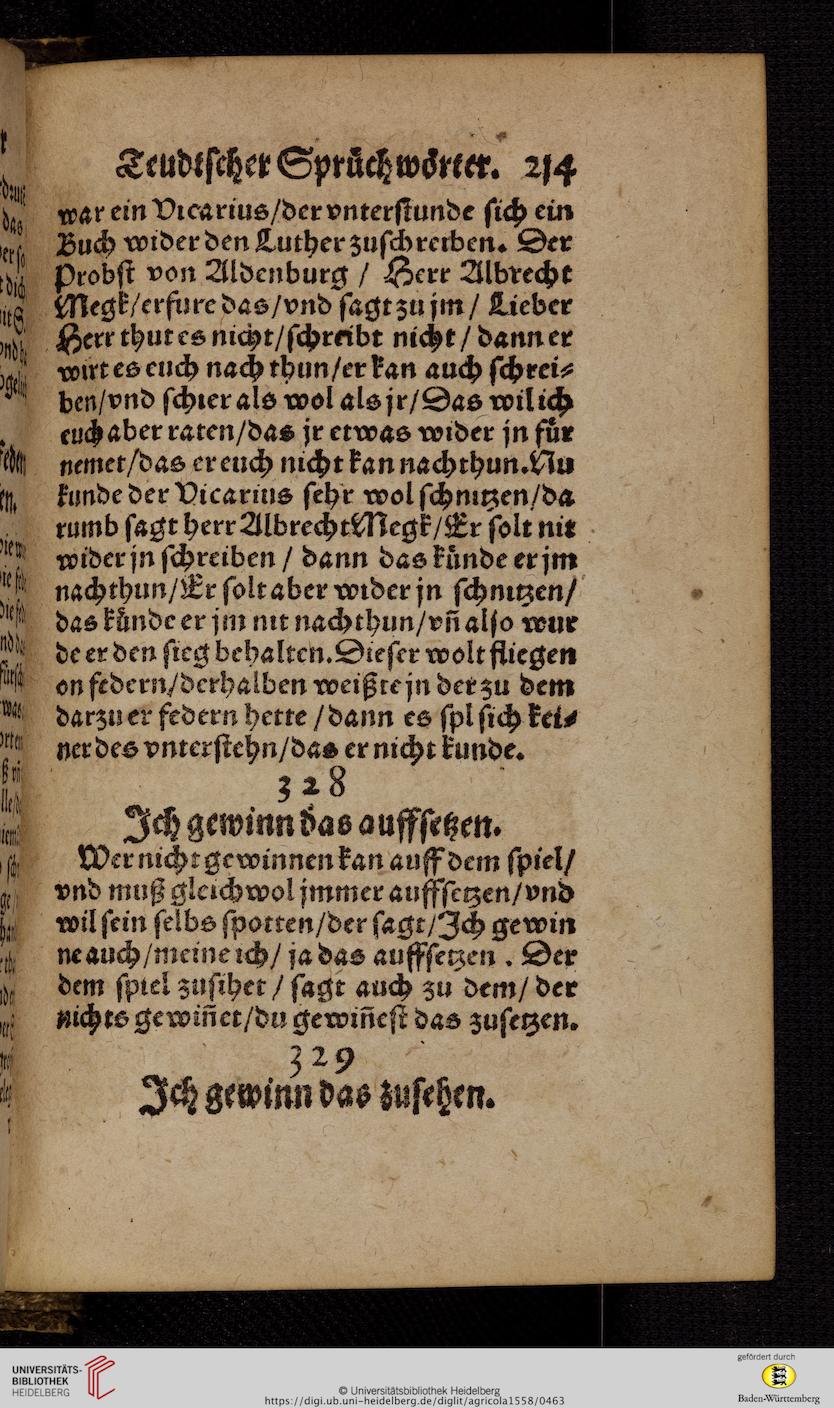 Teudtſcher Sprůchwörter. 214
war ein Vicarius/der vnterſtunde ſich ein
Buch wider den Luther zuſchreiben. Der
Probſt von Aldenburg / Herr Albrecht
Megk/erfure das/vnd ſagt zu jm / Lieber
Herr thut es nicht/ſchreibt nicht / dann er
wirt es euch nach thun/er kan auch ſchrei⸗
ben/vnd ſchier als wol als jr/Das wil ich
euch aber raten/das jr etwas wider jn fůr
nemet/das er euch nicht kan nachthun.Nu
kunde der Vicarius ſehr wol ſchnitzen/da
rumb ſagt herr Albrecht Megk/Er ſolt nit
wider jn ſchreiben / dann das kůnde er jm
nachthun/Er ſolt aber wider jn ſchnitzen/
das kůnde er jm nit nachthun/vñ alſo wur
de er den ſieg behalten.Dieſer wolt fliegen
on federn/derhalben weißte jn der zu dem
darzu er federn hette /dann es ſol ſich kei⸗
ner des vnterſtehn/das er nicht kunde.
328
Ich gewinn das auffſetzen.
Wer nicht gewinnen kan auff dem ſpiel/
vnd muß gleichwol jmmer auffſetzen/vnd
wil ſein ſelbs ſpotten/der ſagt/Ich gewin
ne auch/meine ich/ ja das auffſetzen . Der
dem ſpiel zuſihet / ſagt auch zu dem/ der
nichts gewiñet/du gewiñeſt das zuſetzen.
329
Ich gewinn das zuſehen.
UNIVERSITÄTS-
BIBLIOTHEK
HEIDELBERG
© Universitätsbibliothek Heidelberg
https://digi.ub.uni-heidelberg.de/diglit/agricola1558/0463
gefördert durch
Baden-Württemberg